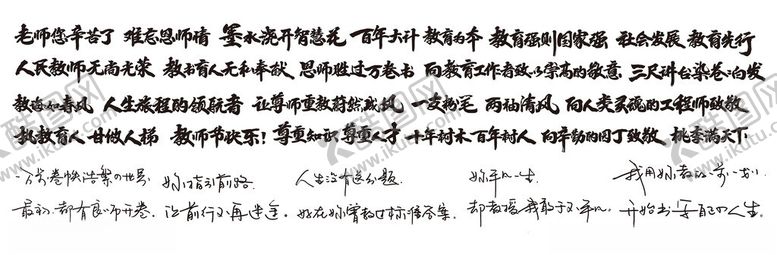 老师您辛苦了 难忘恩师情 墨水浇开智慧花 百年大计 教育为本 教育强则国家强 社会发展 教育先行
人民教师无尚光荣 教书育人无私奉献 恩师胜过万卷书 向教育工作者致以崇高的敬意 三尺讲台染苍白发
教诲如春风 人生旅程的领航者 让尊师重教蔚然成风 一支粉笔 两袖清风 向人类灵魂的工程师致敬
执教育人 甘做人梯 教师节快乐! 尊重知识 尊重人才 十年树木 百年树人 向辛勤的园丁致敬 桃李满天下
一方长卷快语 案の世界 你指引前路 人生没有送分题 你平凡一生 我用你教的
最初 都有良师开卷 让前行不再迷途 好在你曾教过标准答案 却教授我敢于不平凡 开始书写自己の人生